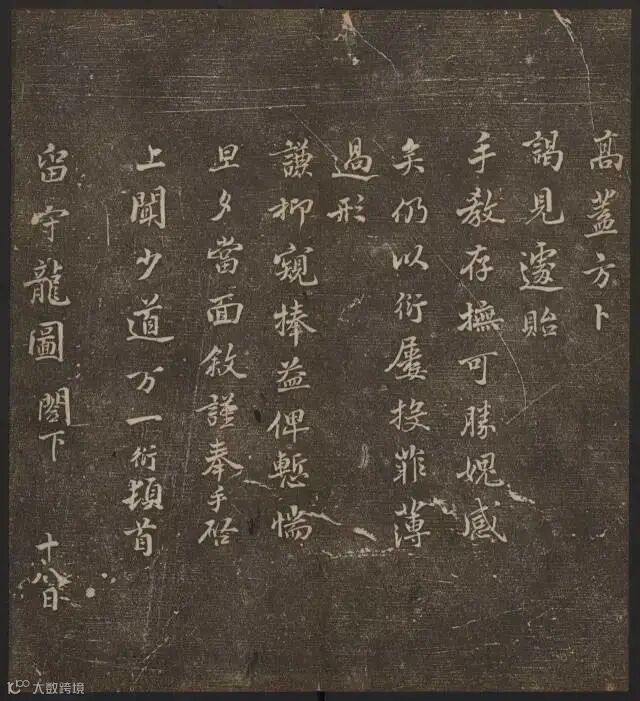 高蓋方卜
謁見遽貽
手教存撫可勝媿感
矣仍以衍屢投菲薄
過形
謙抑窺捧益俾慙惴
旦夕當面敘謹奉手啟
上聞少道万一衍頓首
留守龍圖閣下 十八日
大数跨境